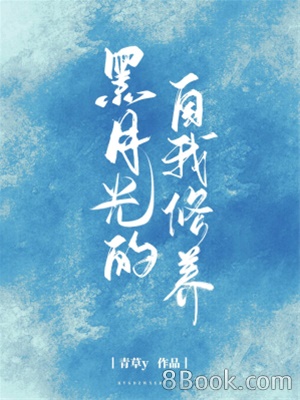 黑月光的
自我修养
青草y 作品
8Book.com